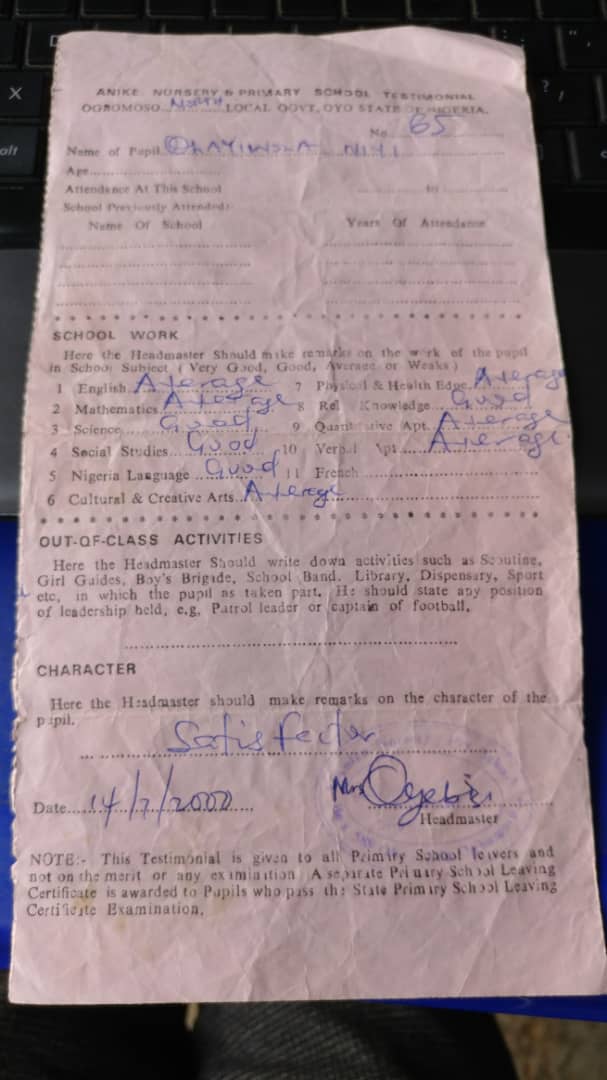 ANIKE NURSERY & PRIMARY SCHOOL TESTIMONIAL
OGBOMOSO...North...LOCAL GOVT. OYO STATE OF NIGERIA.
No 65
Name of Pupil OLAYIWOLA NIYI
Age
Attendance At This School to
School Previously Attended:-
Name Of School Years Of Attendance
SCHOOL WORK
Here the Headmaster Should make remarks on the work of the pupil
in School Subject ( Very Good, Good, Average or Weaks )
1 English Average 7 Physical & Health Edge. Average
2 Mathematics Average 8 Rel Knowledge Good
3 Science Good 9 Quantitative Apt. Average
4 Social Studies Good 10 Verbal Apt Average
5 Nigeria Language Good 11 French
6 Cultural & Creative Arts Average
OUT-OF-CLASS ACTIVITIES
Here the Headmaster Should write down activities such as Scoutine,
Girl Guides, Boy's Brigide, School Band. Library, Dispensary, Sport
etc, in which the pupil as taken part. He should state any position
of leadership held, e.g, Patrol leader or captain of football.
CHARACTER
Here the Headmaster should make remarks on the character of the
pupil.
Date 14/7/2000
Mrs
Headmaster
NOTE:- This Testimonial is given to all Primary School leavers and
not on the merit or any examination A separate Primary School Leaving
Certificate is awarded to Pupils who pass the State Primary School Leaving
Certificate Examination.